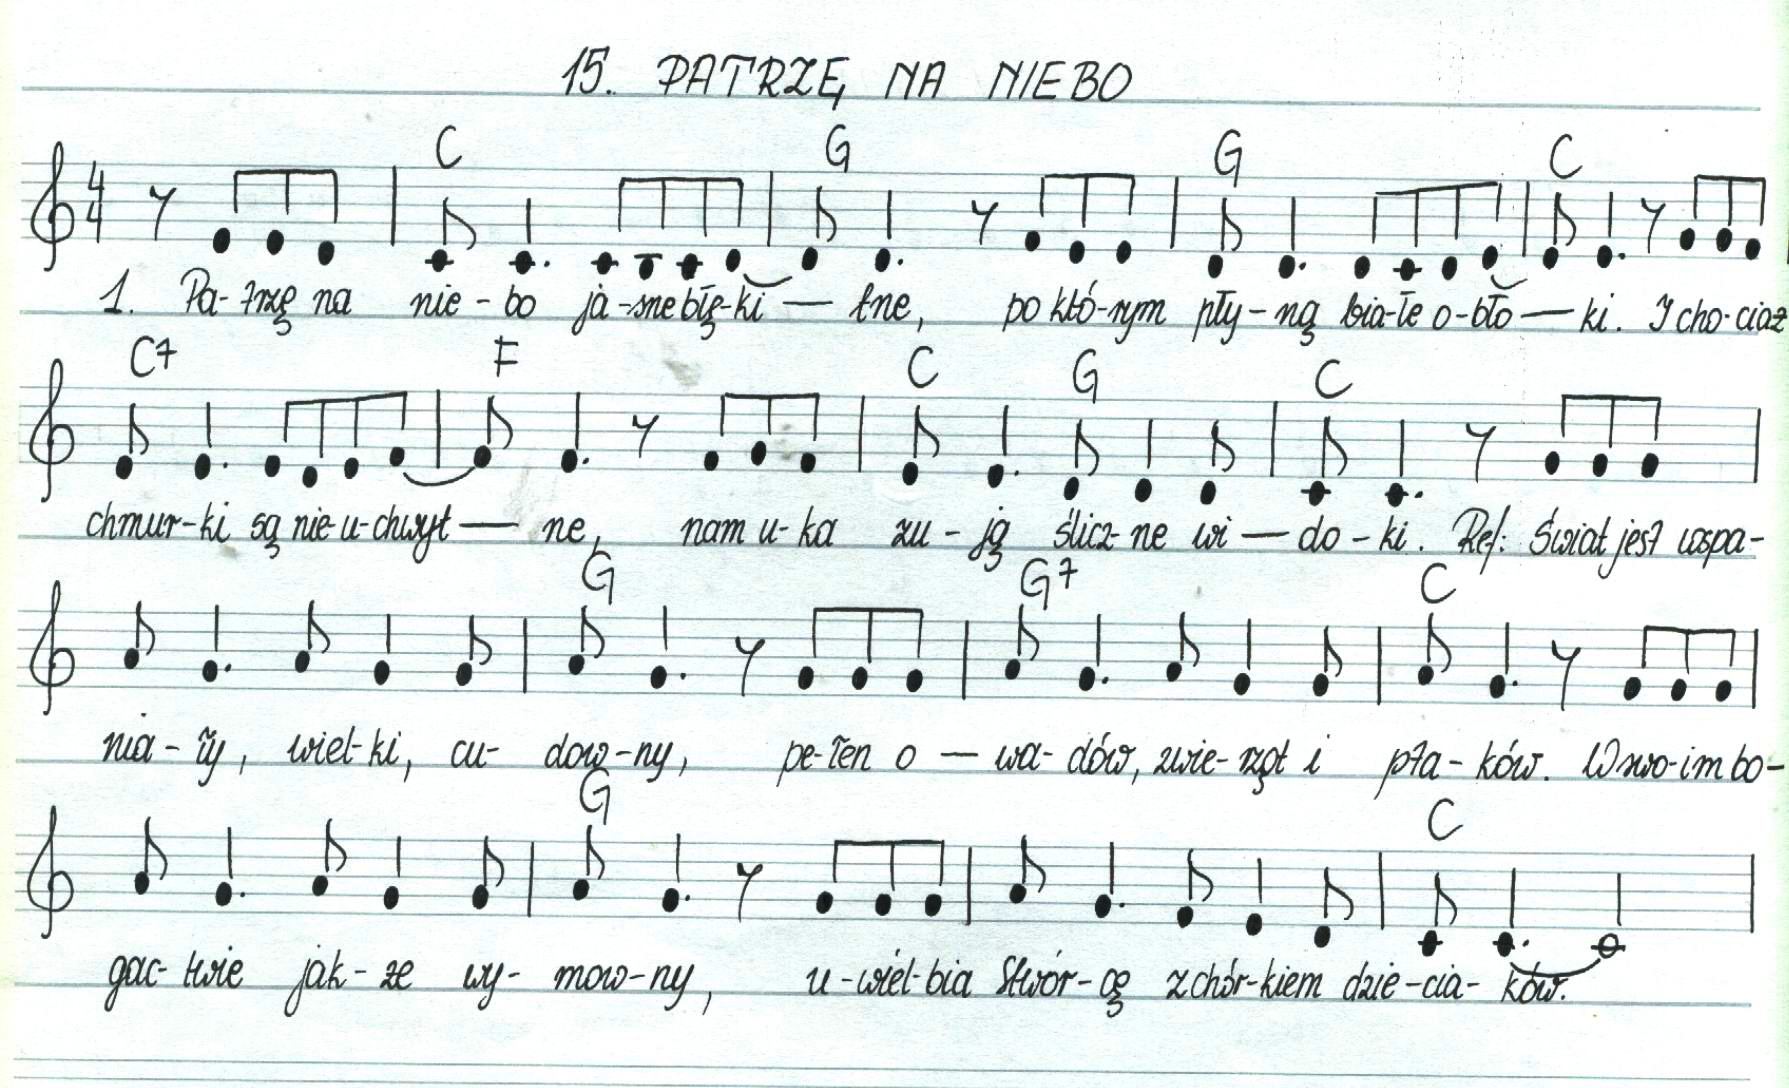 15. PATRZĘ NA NIEBO
C G G C
1. Pa-trzę na nie-bo ja-sne błę-ki — tne, po któ-rym pły-ną bia-łe o-bło — ki. I cho-ciaż
C7 F C G C
chmur-ki są nie-u-chwyt — ne, nam u-ka zu-ją ślicz-ne wi — do-ki. Ref: Świat jest wspa-
G G7 C
nia-ły, wiel-ki, cu-dow-ny, pe-łen o — wa-dów, zwie-rząt i pta-ków. W swo-im bo-
G C
gac-twie jak-że wy-mow-ny, u-wiel-bia Stwór-cę z chór-kiem dzie-cia-ków.